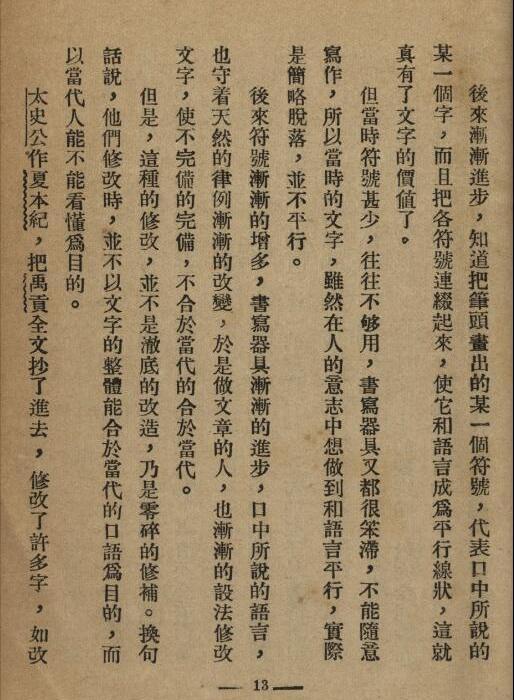 後來漸漸進步，知道把筆頭畫出的某一個符號，代表口中所說的
某一個字，而且把各符號連綴起來，使它和語言成爲平行線狀，這就
真有了文字的價值了。
但當時符號甚少，往往不够用，書寫器具又都很笨滯，不能隨意
寫作，所以當時的文字，雖然在人的意志中想做到和語言平行，實際
是簡略脫落，並不平行。
後來符號漸漸的增多，書寫器具漸漸的進步，口中所說的語言，
也守着天然的律例漸漸的改變，於是做文章的人，也漸漸的設法修改
文字，使不完備的完備，不合於當代的合於當代。
但是，這種的修改，並不是澈底的改造，乃是零碎的修補。換句
話說，他們修改時，並不以文字的整體能合於當代的口語爲目的，而
以當代人能不能看懂爲目的。
太史公作夏本紀，把禹貢全文抄了進去，修改了許多字，如改
— 13 —